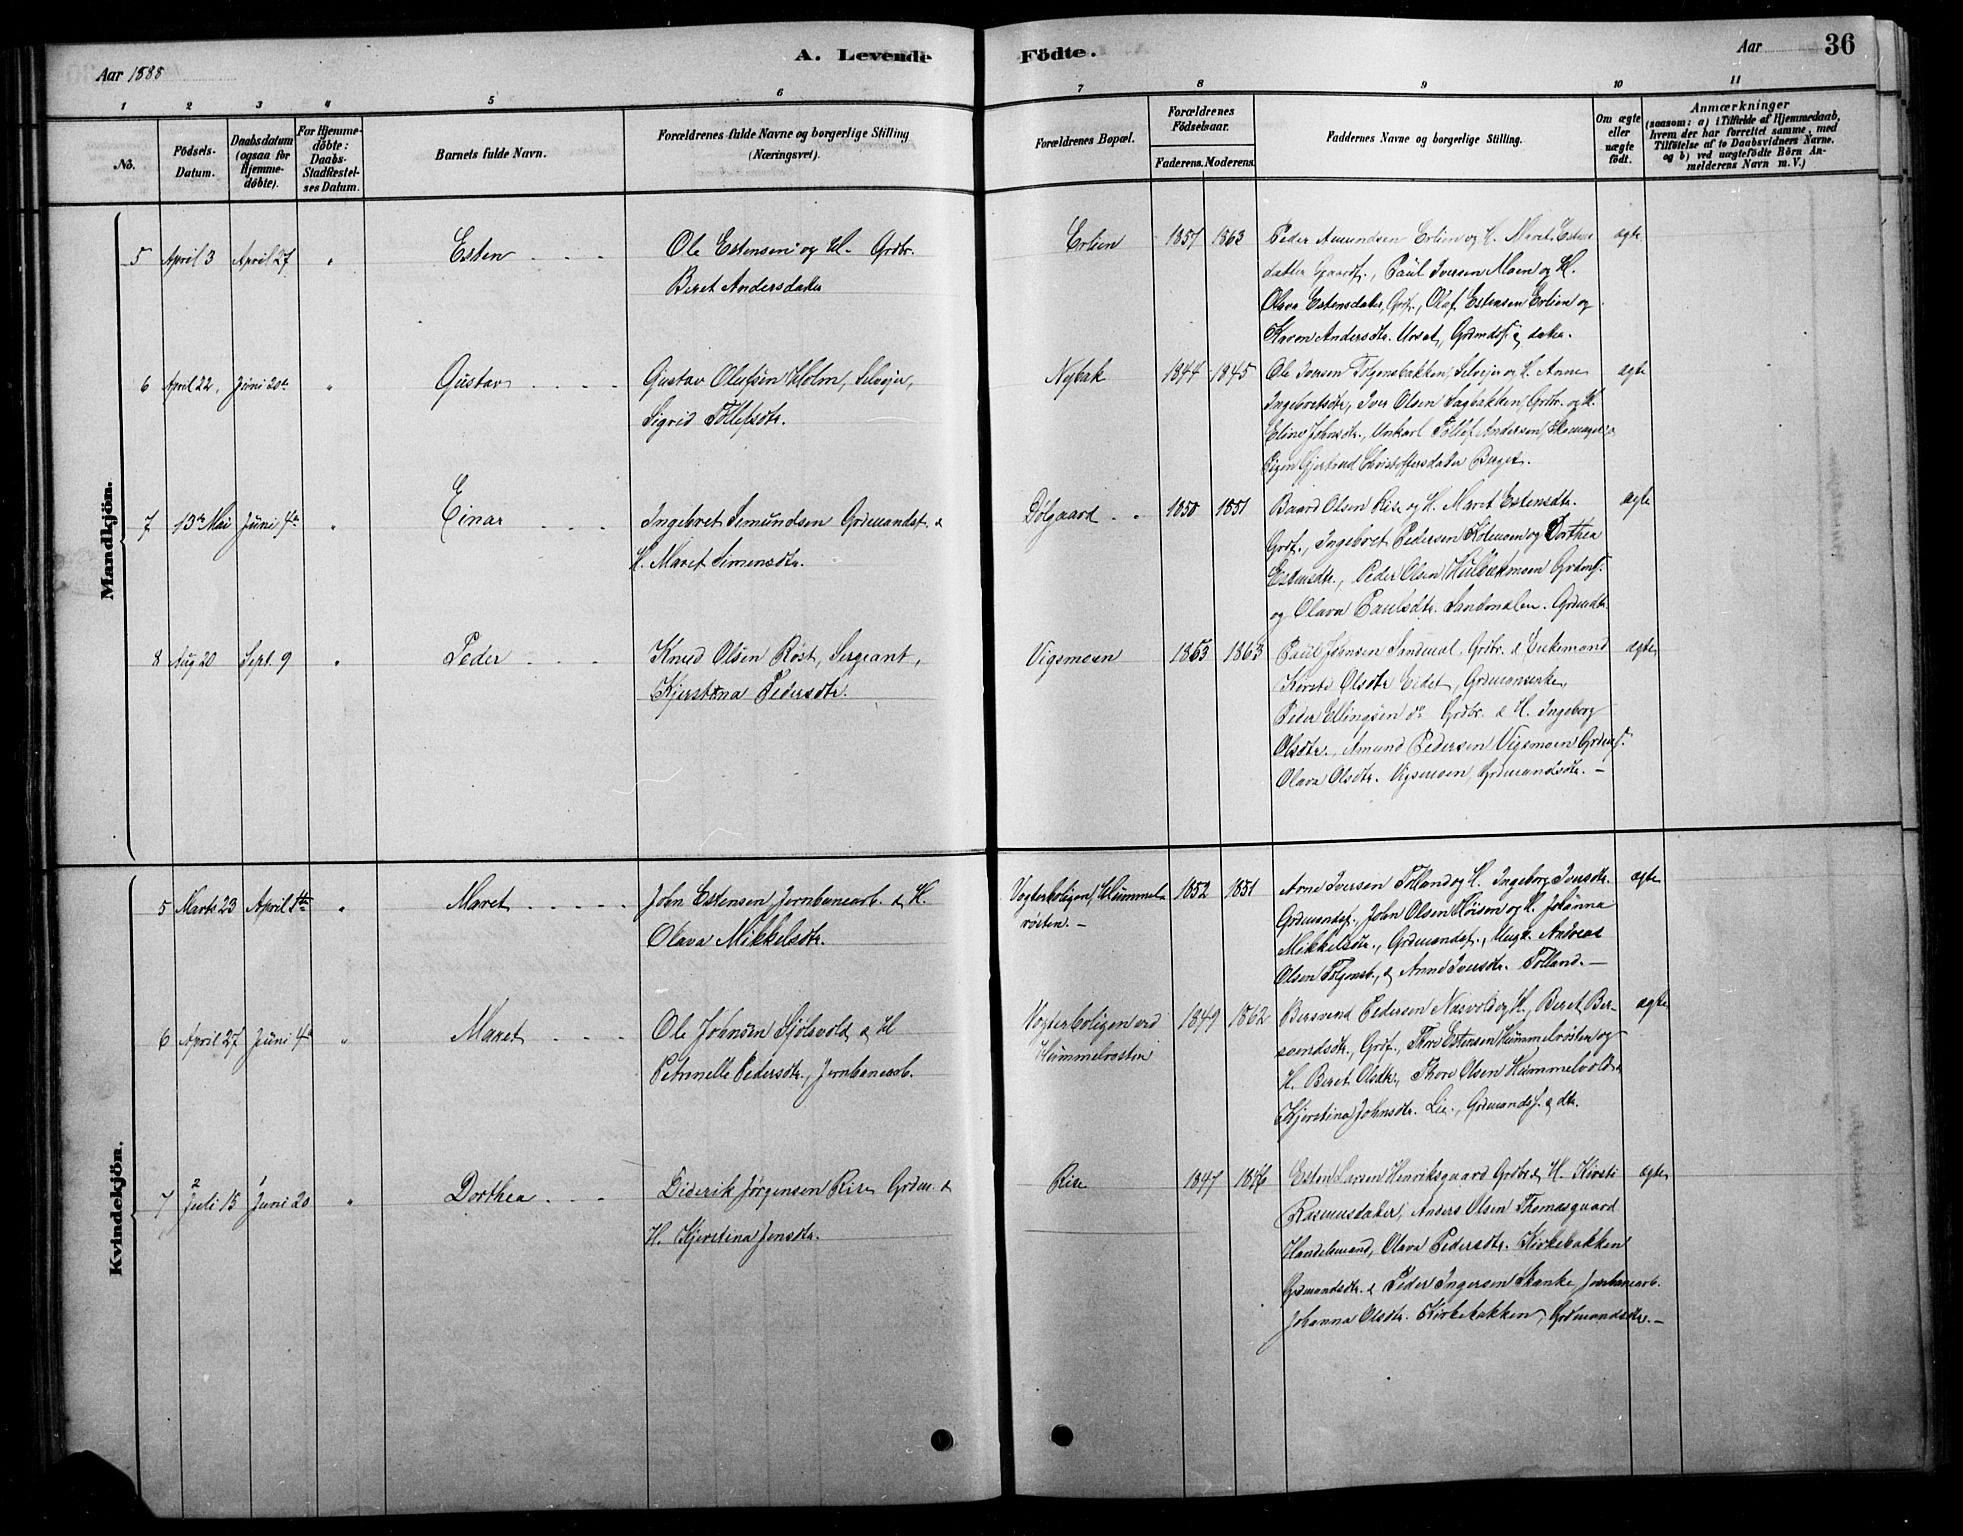 Aar 1888
A. Levende
Födte.
Aar
36
1
2
3
4
5
6
7
8
9
10
11
No.
Födsels-
Datum.
Daabsdatum
(ogsaa for
Hjemme-
döbte).
For Hjemme-
döbte:
Daabs-
Stadfæstel-
ses Datum.
Barnets fulde Navn.
Forældrenes fulde Navne og borgerlige Stilling
(Næringsvei).
Forældrenes Bopæl.
Forældrenes
Födselsaar.
Faderens. Moderens.
Faddernes Navne og borgerlige Stilling.
Om ægte
eller
uægte
födt.
Anmærkninger
(saasom: a) i Tilfælde af Hjemmedaab,
hvem der har forrettet samme, med
Tilföielse af to Daabsvidners Navne,
og b) ved uægtefödte Börn An-
melderens Navn m. V.)
Mandkjön.
5 April 3 April 27 " Esten
Ole Estensen og H. Grdbr.
Beret Andersdatter
Erlien 1857 1863
Peder Amundsen Erlien og H. Maret Estens
datter Gaardf., Paul Iversen Moen og H.
Olava Estensdatter, Grdf., Oluf Estensen Erlien og
Karen Andersdtr. Urset, Grdmdsf. & datter.
ægte
6 April 22, Juni 20de " Gustav
Gustav Olufsen Holm, Selveier,
Sigrid Tollefsdtr.
Nybak 1844 1845
Ole Iversen Tolgensbakken, Selveier og H. Anne
Ingebretsdtr, Iver Olsen Sagbakken, Grdbr. og H.
Eline Johnsdtr., Unkarl Tollef Andersen, Skomager &
Pigen Gjertrud Christoffersdatter Berget.
ægte
7 13de Mai Juni 4de " Einar
Ingebret Semundsen Grdmandsf. &
H. Maret Simensdtr.
Dølgaard 1850 1851
Baard Olsen Rise og H. Maret Estensdtr.
Grdf., Ingebret Pedersen Kolmoen og Dorthea
Estensdtr., Peder Olsen Hulbækmoen Grdmsf.
og Olava Paulsdtr. Sandmælen. Grdmdtr.
ægte
8 Aug 20 Sept. 9 " Peder
Knud Olsen Røst, Sergeant,
Kjerstina Pedersdtr.
Vigsmoen 1863 1863
Paul Jonsen Sandmæl, Grdbr. & Enkemand
Kirsti Olsdtr Eidet, Grdmansenke,
Peder Ellingsen do Grdbr. & H. Ingeborg
Olsdtr., Amund Pedersen Vigsmoen Grdmsf.
Olava Olsdtr. Vigsmoen, Grdmandsdtr. –
ægte
Kvindekjön.
5 Marts 23 April 1ste " Maret
John Estensen, Jernbanearb. & H.
Olava Mikkelsdtr.
Vogterboligen, Hummel-
røsten. – 1852 1851
Arne Iversen Tolland og H. Ingeborg Iversdtr.
Grdmandsf., John Olsen Moisen og H. Johanna
Mikkelsdtr., Grdmandsf., Ungk. Andreas
Olsen Tolgensb., & Anne Iversdtr. Tolland. –
ægte
6 April 27 Juni 4de " Maret
Ole Johnsen Sjølsvold & H
Petronelle Pedersdtr., Jernbanearb.
Vogterboligen ved
Hummelrøsten 1849 1862
Bersvend Pedersen Næsvold og H., Beret Ber-
svendsdtr., Grdf., Thore Estensen Hummelrøsten og
H. Beret Olsdtr., Thore Olsen Hummelvold &
Kjerstina Johnsdtr. Lie., Grdmandsf. & dtr.
ægte
7 Juli 15 Juni 20 " Dorthea
2 1
Diderik Jørgensen Rise, Grdm. &
H. Kjerstina Jonsdtr.
Rise 1847 1846
Esten Larsen Henriksgaard Grdbr. & H. Kirsti
Rasmusdatter, Anders Olsen Thomasgaard
Handelsmand, Olava Pedersdtr. Kirkebakken
Grdmandsdtr. & Peder Ingersen Skanke Jernbanearb.
Johanna Olsdtr. Kirkebakken, Grdmandsdtr. –
ægte